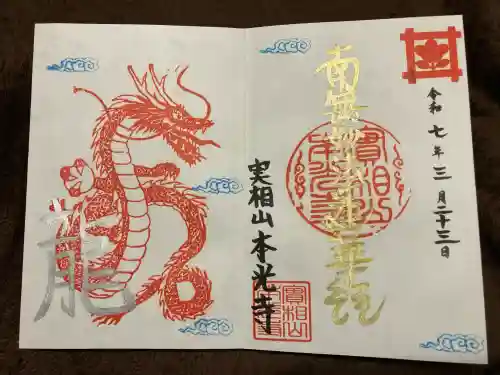 令和七年三月二十三日
南無妙法蓮華経
実相山本光寺
實相山
龍